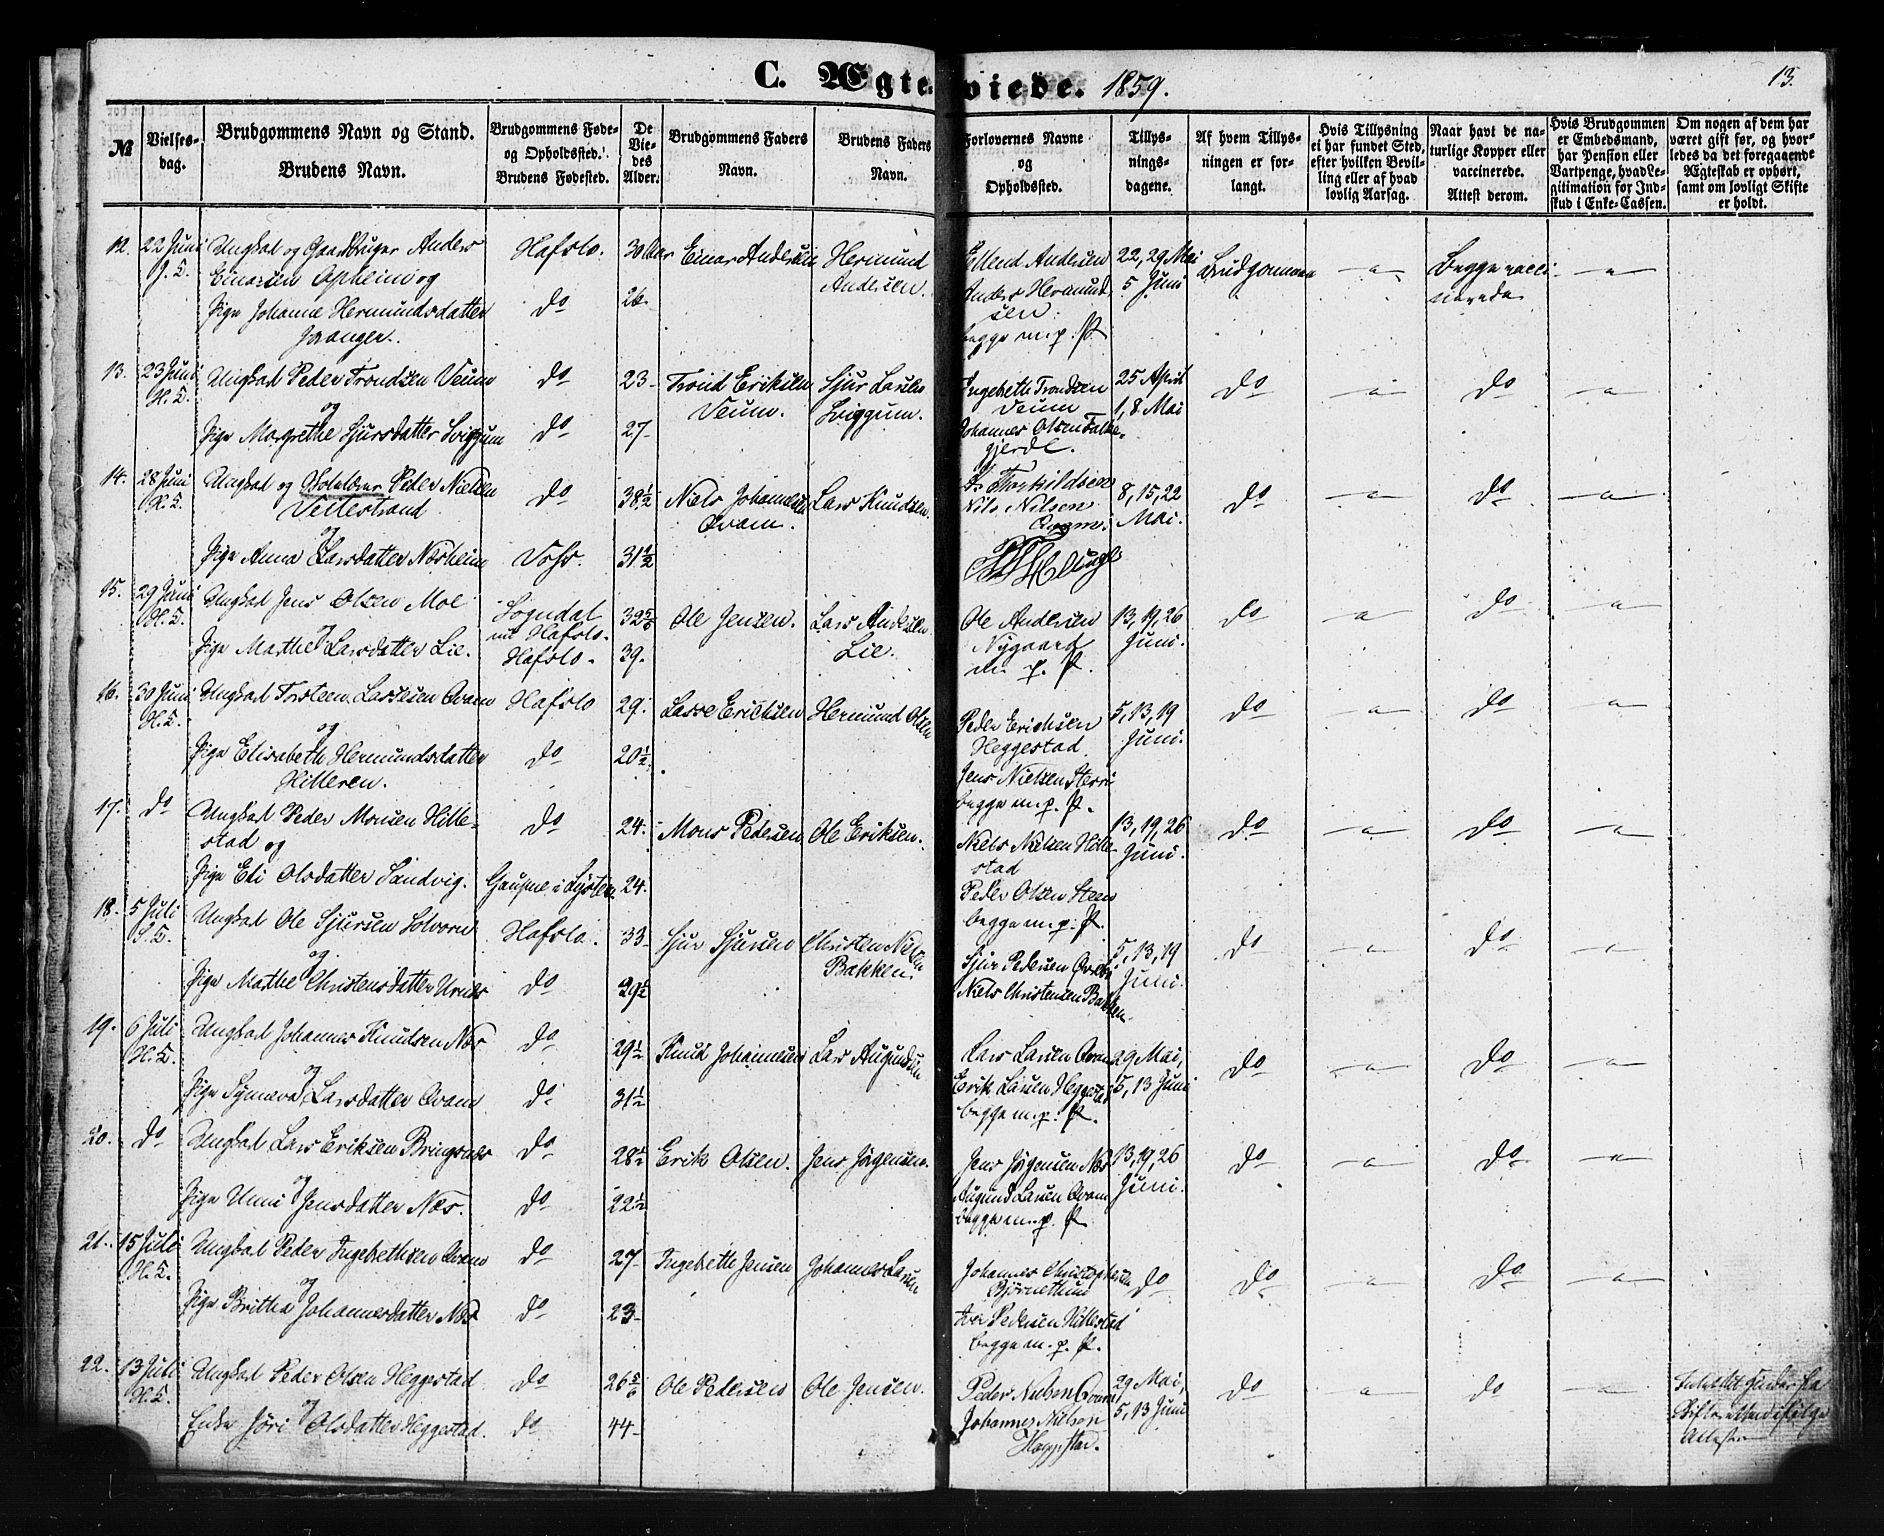 C. Ægteviede. 1859.
13.
№
Vielses-dag.
Brudgommens Navn og Stand. Brudens Navn.
Brudgommens Føde- og Opholdssted. Brudens Fødested.
De Viedes Alder.
Brudgommens Faders Navn.
Brudens Faders Navn.
Forlovernes Navne og Opholdssted.
Tillysningsdagene.
Af hvem Tillysningen er forlangt.
Hvis Tillysning ei har fundet Sted, efter hvilken Bevilling eller af hvad lovlig Aarsag.
Naar havt de naturlige Kopper eller vaccinerede. Attest derom.
Hvis Brudgommen er Embedsmand, har Pension eller Vartpenge, hvad Legitimation for Indskud i Enke-Cassen.
Om nogen af dem har været gift før, og hvorledes da det foregaaende Ægteskab er ophørt, samt om lovligt Skifte er holdt.
12. 22 Juni Ungkal og Gaardbruger Anders Hafslo. 30 Aar Einar Andersen Hermund Ellend Andersen 22, 29 Mai Brudgommen — Begge vacci- —
Einarsen Opheim og Andersen. Anders Hermund- 5 Juni nerede
Pige Johanne Hermundsdatter do 26 sen
Joranger. begge m. p. P.
13. 23 Juni Ungkal Peder Trondsen Veum do 23 Trond Eriksen Sjur Larsen Ingebreth Trondsen 25 April do — do —
H. K. og Veum. Sviggum. Veum 1, 8 Mai
Pige Margrethe Sjursdatter Sviggum do 27 Johannes Olsen
gjerde.
14. 28 Juni Ungkal og Peder Nielsen do 38½ Niels Johannesen Lars Knudsen. Torkildsen 8, 15, 22 do — do —
H. K. Veitestrand Qvam. Nils Nilsen Mai.
og Qvam.
Pige Anna Larsdatter Næsheim Voss. 31½
15. 29 Juni Ungkal Jens Olsen Moe Sogndal 32 5/6 Ole Jensen. Lars Andersen Ole Andersen 13, 19, 26 do — do —
H. K. og Hafslo. Lie. Nygaard Juni.
Pige Marthe Larsdatter Lie. Hafslo. 39. m. p. P.
16. 30 Juni Ungkal Torsteen Lassesen Qvam Hafslo 29. Lasse Erichsen Hermund Olsen Peder Erichsen 5, 13, 19 do — do —
H. K. og Heggestad Juni.
Pige Elisabeth Hermundsdatter do 20½ Jens Nielsen
Hilleren. begge m. p. P.
17. do Ungkal Peder Monsen Hille- do 24. Mons Pedersen Ole Eriksen. Niels Nielsen Hille- 13, 19, 26 do — do —
stad og stad Juni.
Pige Eli Olsdatter Sandvig. Gaupne i Lyster. 24. Peder Olsen Steen
begge m. p. P.
18. 5 Juli Ungkal Ole Sjursen Solvorn Hafslo. 33 Sjur Sjursen Christen Nielsen Sjur Pedersen 5, 13, 19 do — do —
S. K. og Bakken Juni.
Pige Marthe Christensdatter Urnes do 29½ Niels Christensen Bakken.
19. 6 Juli Ungkal Johannes Knudsen Næs do 29½ Knud Johannesen Lars Augundsen Lars Larsen Qvam 29 Mai, do — do —
H. K. og Erik Larsen Heggestad 5, 13 Juni
Pige Synneva Larsdatter Qvam do 31½ begge m. p. P.
20. do Ungkal Lars Eriksen Bringsnæs do 28½ Erik Olsen. Jens Jørgensen. Jens Jørgensen Næs 13, 19, 26 do — do —
og Augund Larsen Qvam Juni.
Pige Unni Jensdatter Næs. do 22½ begge m. p. P.
21. 15 Juli Ungkal Peder Ingebrethsen Qvam do 27 Ingebrette Jensen Johannes Larsen Johannes Christophersen do do — do —
H. K. og Bjørnetun
Pige Brittha Johannesdatter Næs do 23 Iver Pedersen Hillestad
begge m. p. P.
22. 13 Juli Ungkal Peder Olsen Heggestad do 26 5/6 Ole Pedersen Ole Jensen. Peder Nielsen Qvam 29 Mai, do — do —
H. K. og Johannes Nielsen 5, 13 Juni
Enke Jøri Olsdatter Heggestad. do 44 Heggestad.